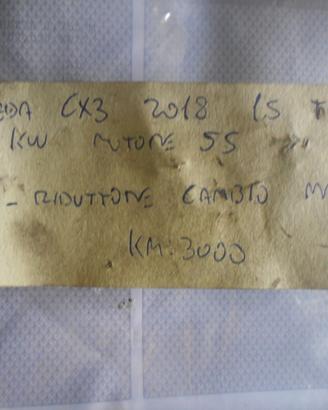 CX3 2018 1.5
KW MOTORE S5
- RIDUTTORE CAMBIO
KM: 3000